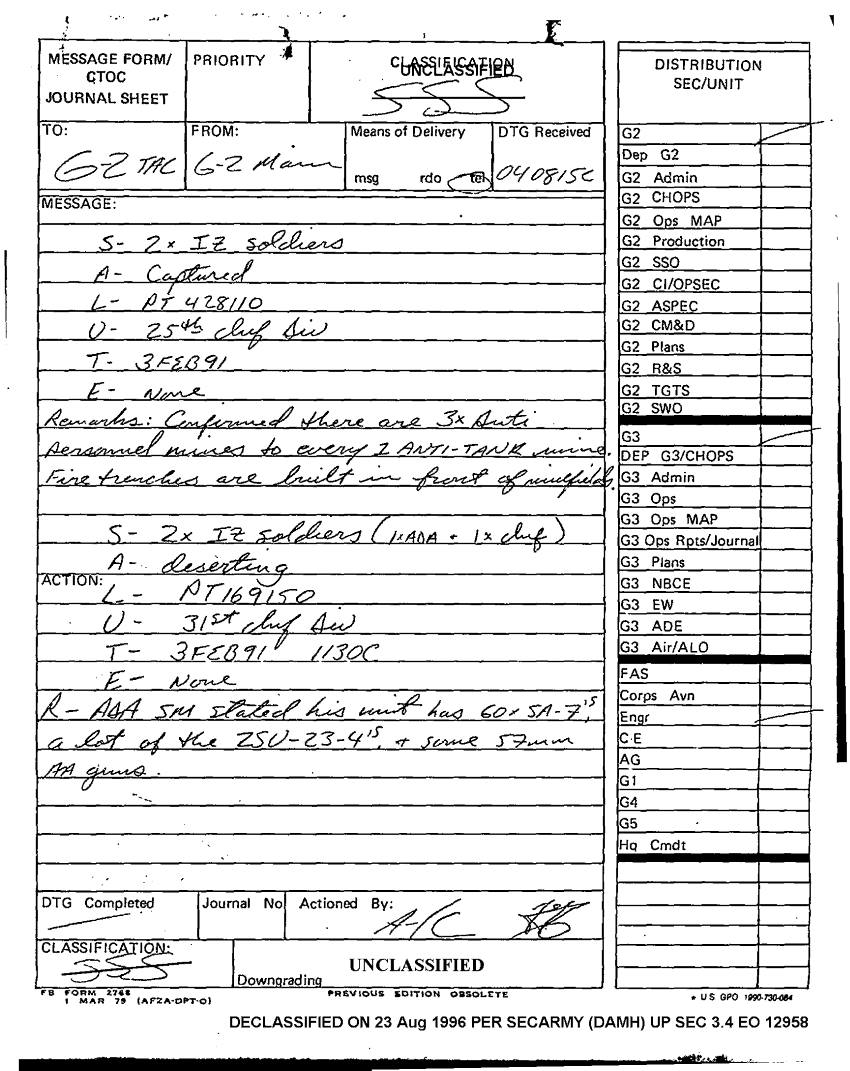 MESSAGE FORM/
CTOC
JOURNAL SHEET
PRIORITY
CLASSIFICATION
UNCLASSIFIED
SSS
TO:
G-2 TAC
FROM:
G-2 Main
Means of Delivery
msg rdo tel
DTG Received
040815C
MESSAGE:
S- 2x IZ soldiers
A- Captured
L- PT 428110
U- 25th Inf Div
T- 3FEB91
E- None
Remarks: Confirmed there are 3x Anti
Personnel mines to every 1 ANTI-TANK mine.
Fire trenches are built in front of minefields.
S- 2x IZ soldiers (1xADA + 1x Inf)
A- deserting
ACTION:
L- PT169150
U- 31st Inf Div
T- 3FEB91 1130C
E- None
R- ADA SM stated his unit has 60x SA-7's,
a lot of the ZSU-23-4's, + some 57mm
AA guns.
DTG Completed
Journal No
Actioned By:
A-/C
CLASSIFICATION:
SSS
Downgrading
UNCLASSIFIED
FB FORM 2768
1 MAR 79 (AFZA-DPT-O)
PREVIOUS EDITION OBSOLETE
DISTRIBUTION
SEC/UNIT
G2
Dep G2
G2 Admin
G2 CHOPS
G2 Ops MAP
G2 Production
G2 SSO
G2 CI/OPSEC
G2 ASPEC
G2 CM&D
G2 Plans
G2 R&S
G2 TGTS
G2 SWO
G3
DEP G3/CHOPS
G3 Admin
G3 Ops
G3 Ops MAP
G3 Ops Rpts/Journal
G3 Plans
G3 NBCE
G3 EW
G3 ADE
G3 Air/ALO
FAS
Corps Avn
Engr
C-E
AG
G1
G4
G5
Hq Cmdt
* US GPO 1990-730-084
DECLASSIFIED ON 23 Aug 1996 PER SECARMY (DAMH) UP SEC 3.4 EO 12958